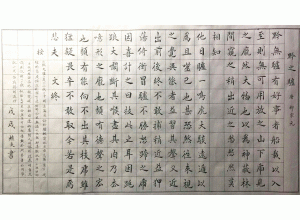 黔之驢 唐 柳宗元
黔無驢有好事者船載以入
至則無可用放之山下虎見
之龐然大物也以為神蔽林
間窺之稍出近之憖憖然莫
相知
他日驢一鳴虎大駭遠遁以
為且噬己也甚恐然往來視
之覺無異能者益習其聲又近
出前後終不敢搏稍近益狎
蕩倚衝冒驢不勝怒蹄之虎
因喜計之曰技止此耳因跳
踉大㘎斷其喉盡其肉乃去
噫形之龐也類有德聲之宏
也類有能向不出其技虎雖
猛疑畏卒不敢取今若是焉
悲夫 文終
戊戌 書